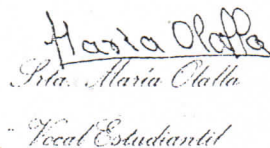 María Olalla
Srta. María Olalla
Vocal Estudiantil